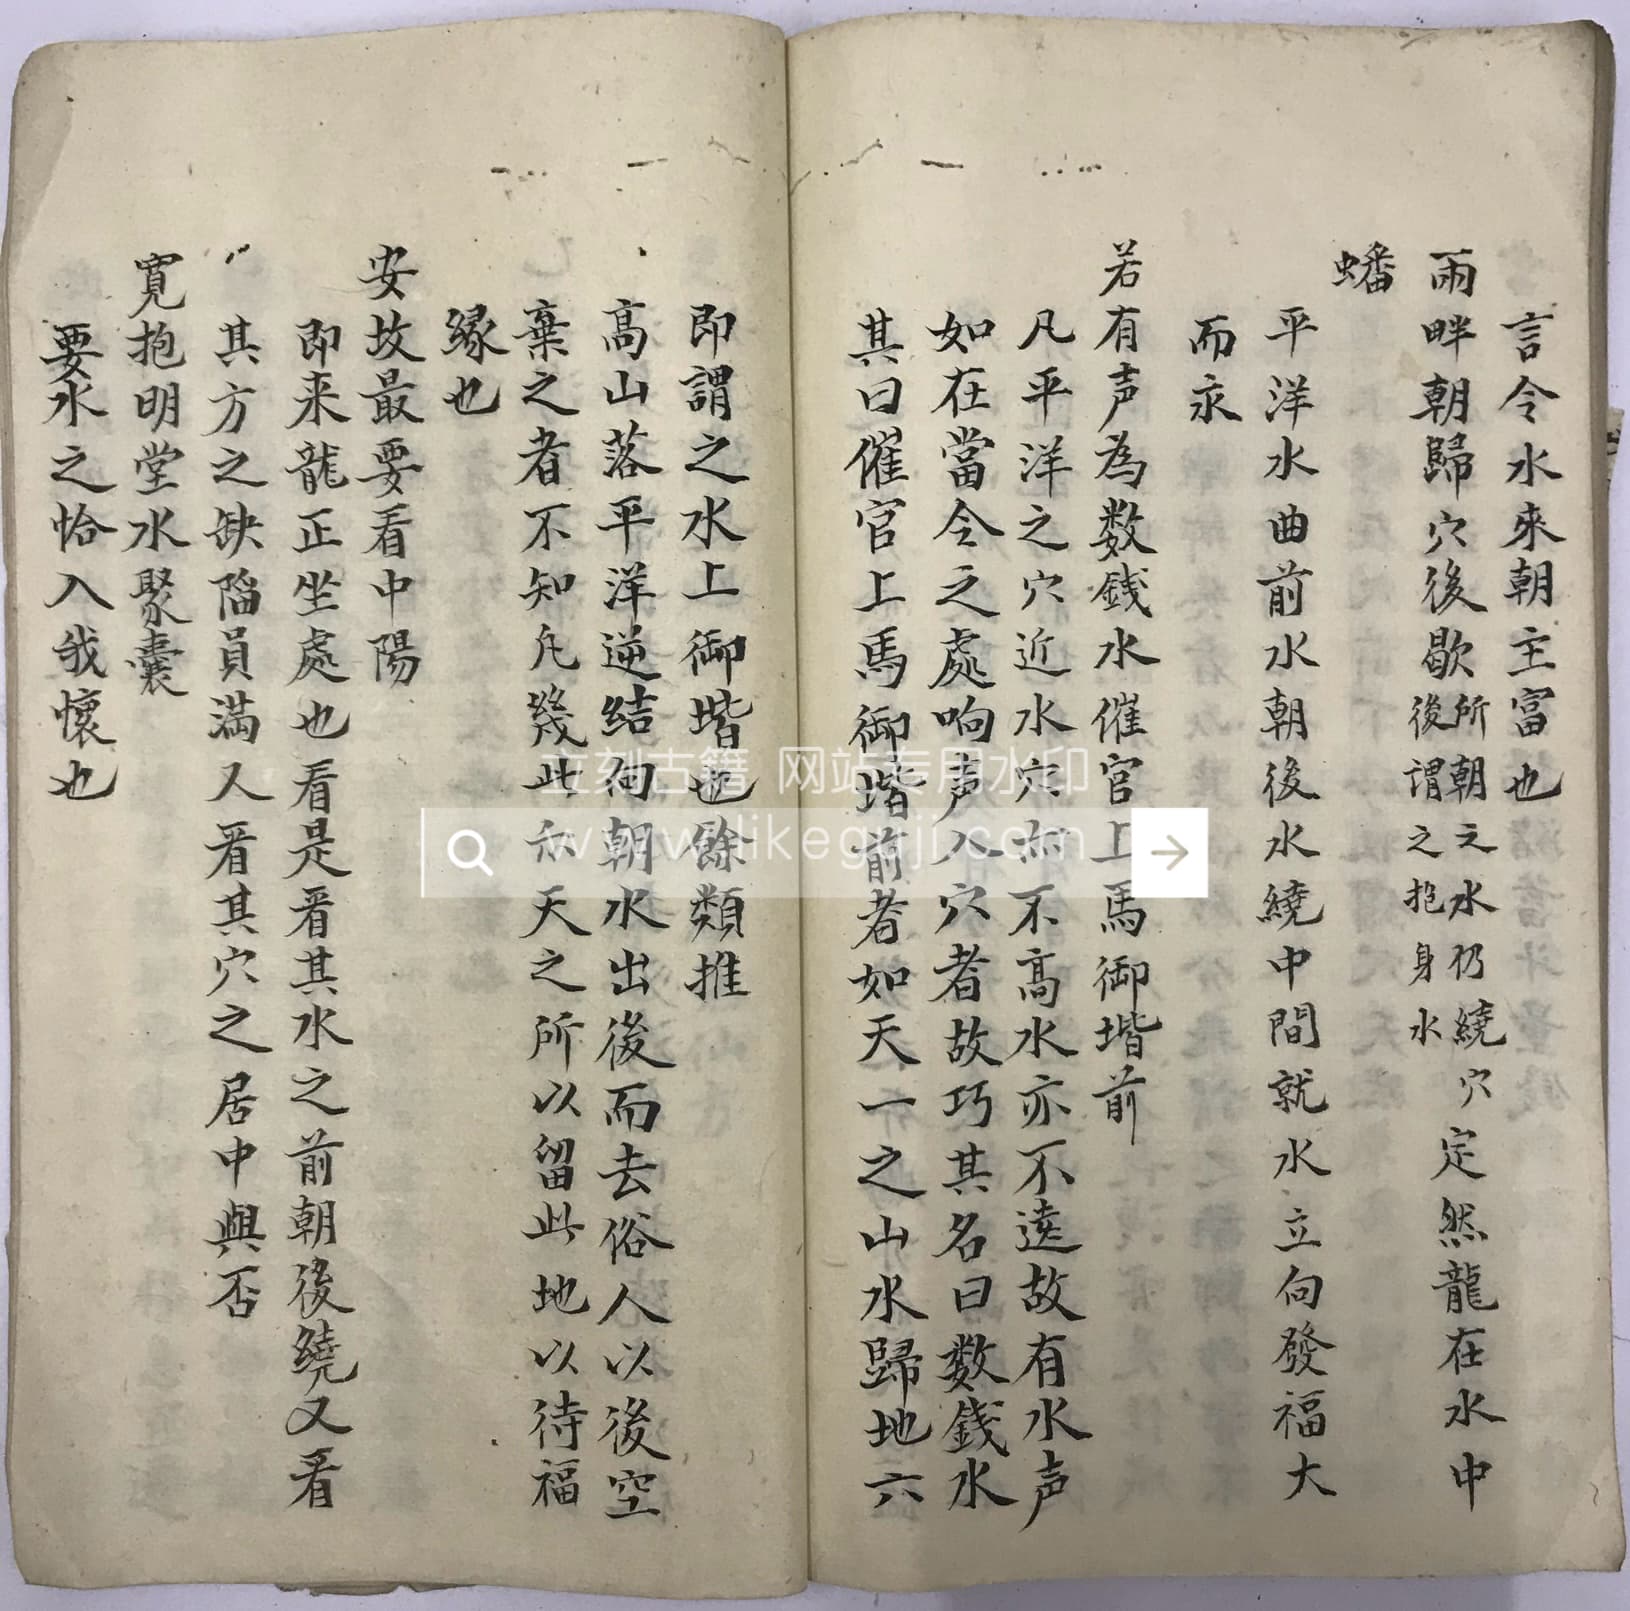 言令水來朝主富也
兩畔朝歸穴後歇所朝之水仍繞穴後謂之抱身水定然龍在水中
蟠
平洋水曲前水朝後水繞中間就水立向發福大
而永
若有声為数銭水催官上馬御堦前
凡平洋之穴近水穴亦不高水亦不遠故有水声
如在當令之處响声入穴者故巧其名曰数錢水
其曰催官上馬御堦前者如天一之山水歸地六
即謂之水上御堦也餘類推
高山落平洋逆結向朝水出後而去俗人以後空
棄之者不知凡幾此和天之所以留此地以待福
緣也
安坟最要看中陽
即来龍正坐處也看是看其水之前朝後繞又看
其方之缺陷員満人看其穴之居中與否
寛抱明堂水聚囊
要水之恰入我懷也
立刻古籍 网站专用水印
www.likeguji.com